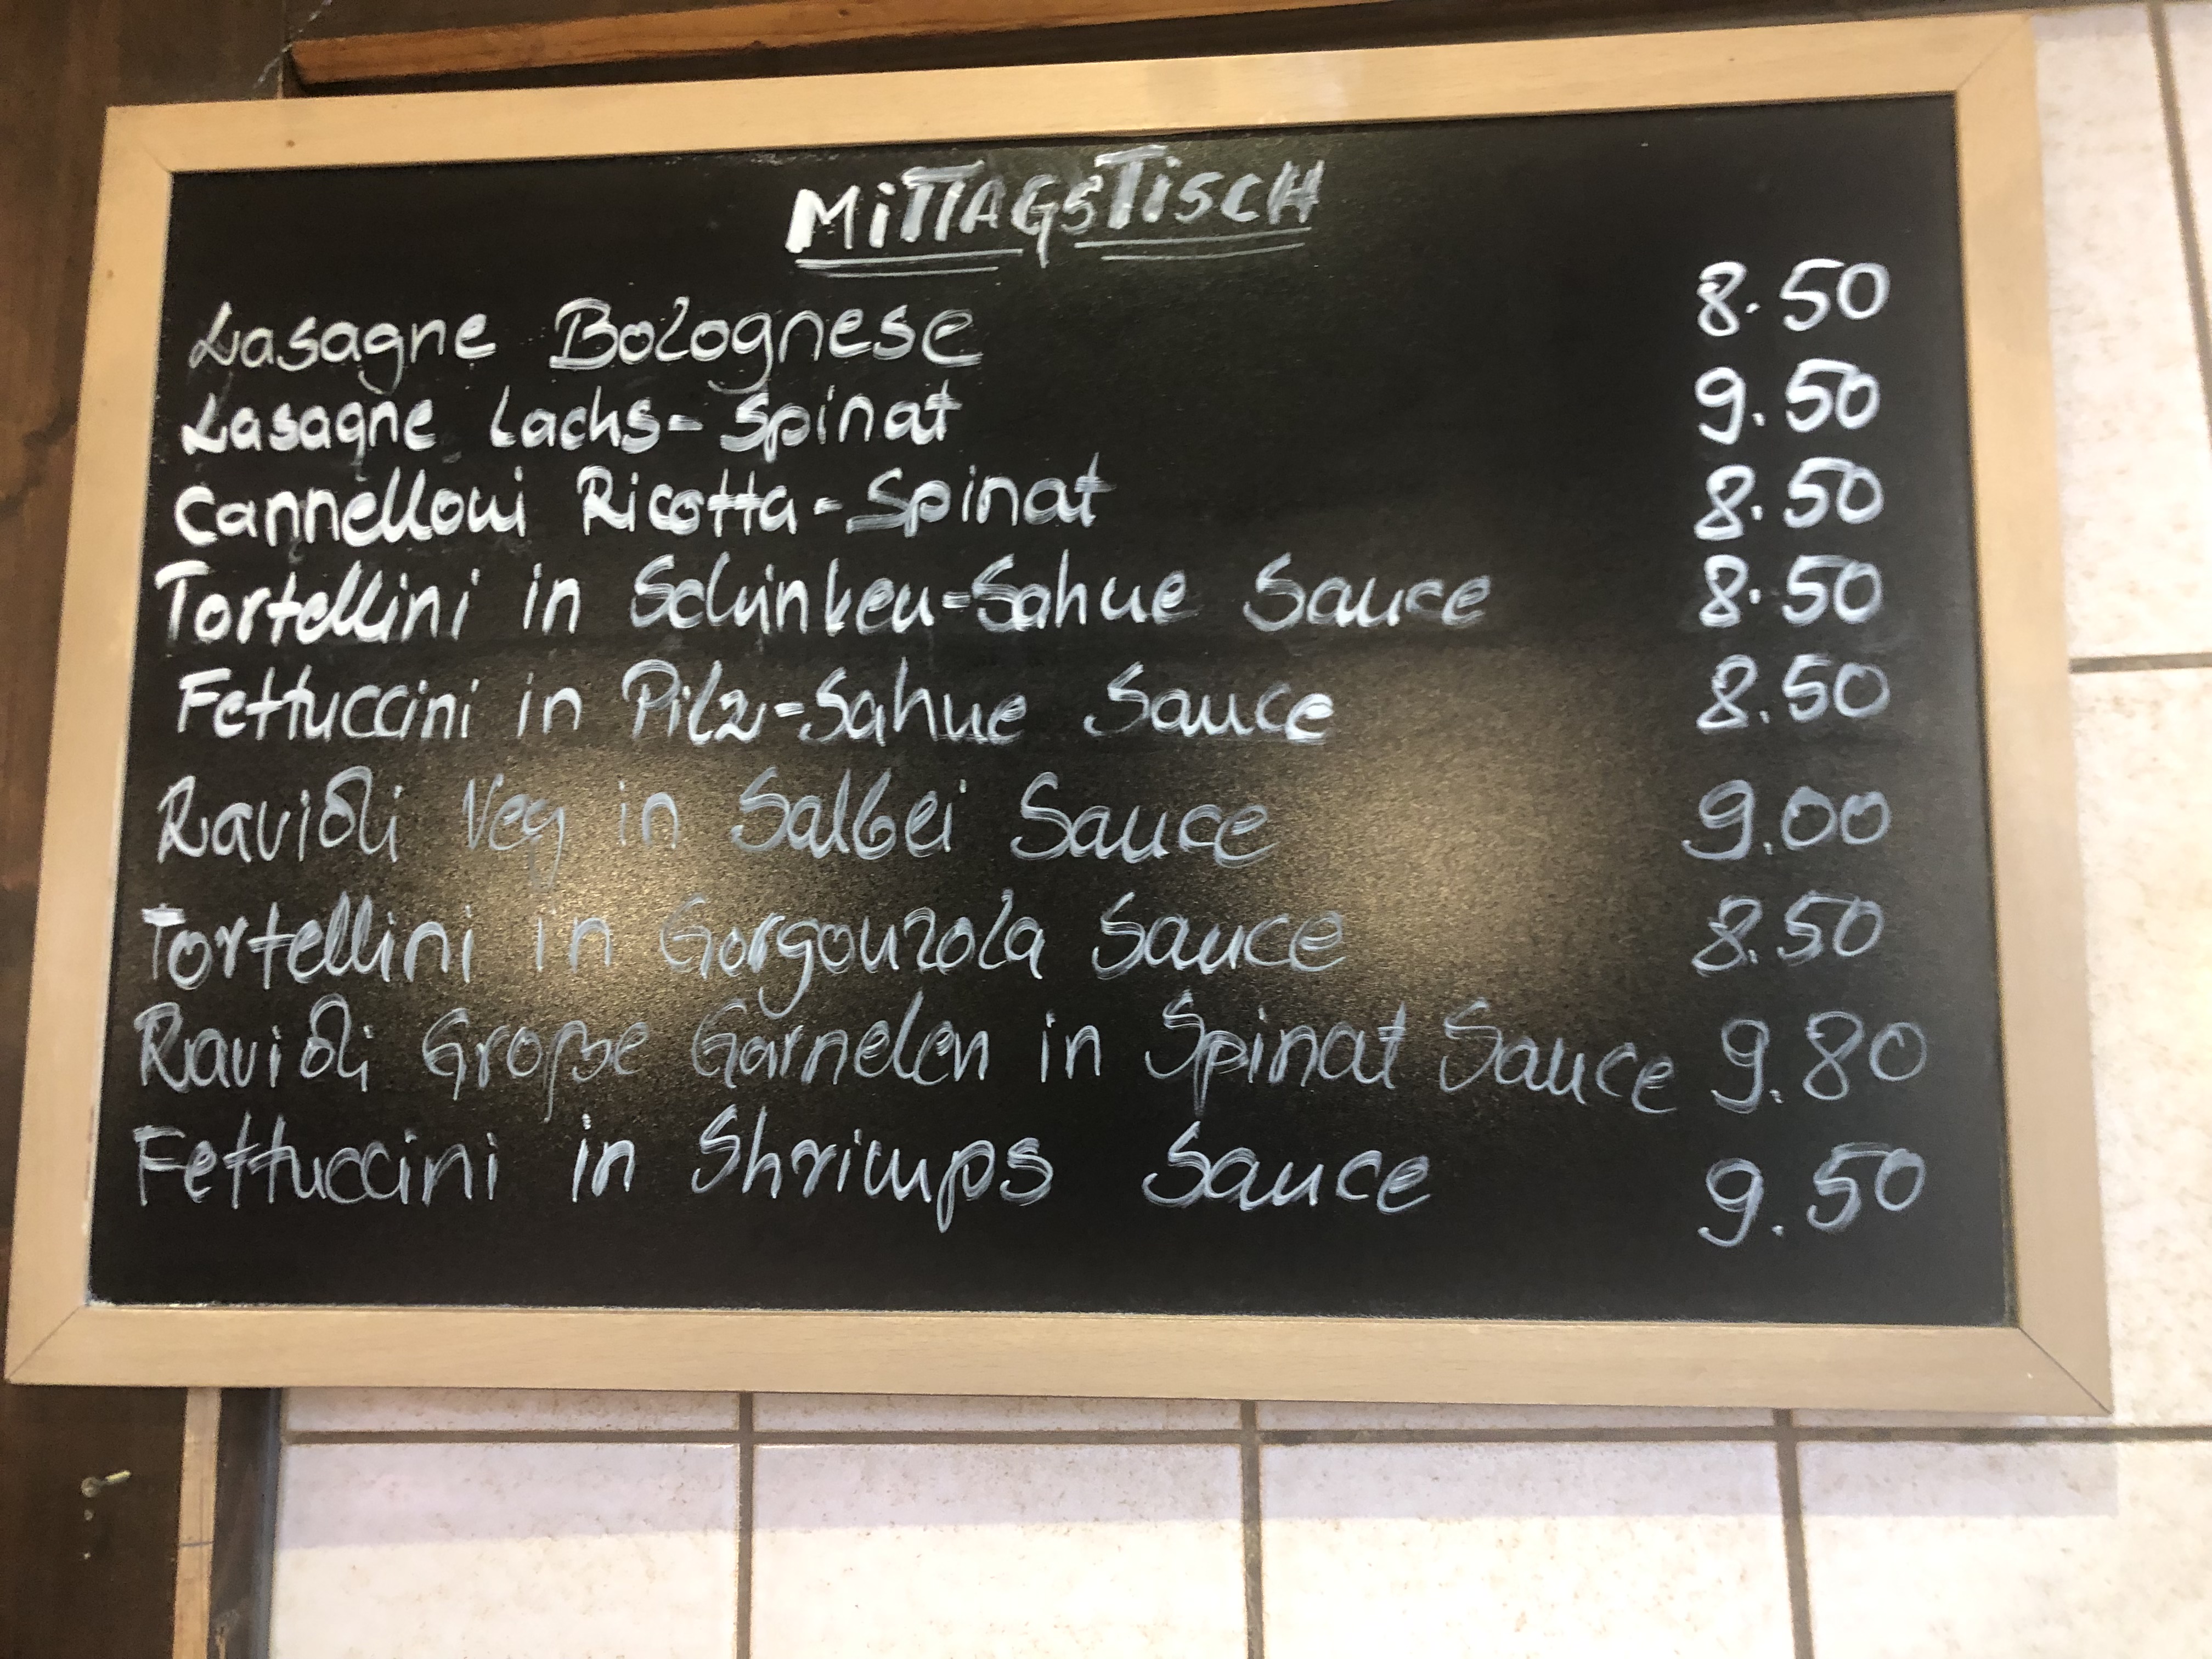 MiTTAGSTiSCH
Lasagne Bolognese 8.50
Lasagne Lachs-Spinat 9.50
Cannelloni Ricotta-Spinat 8.50
Tortellini in Schinken-Sahne Sauce 8.50
Fettuccini in Pilz-Sahne Sauce 8.50
Ravioli Veg in Salbei Sauce 9.00
Tortellini in Gorgonzola Sauce 8.50
Ravioli Große Garnelen in Spinat Sauce 9.80
Fettuccini in Shrimps Sauce 9.50